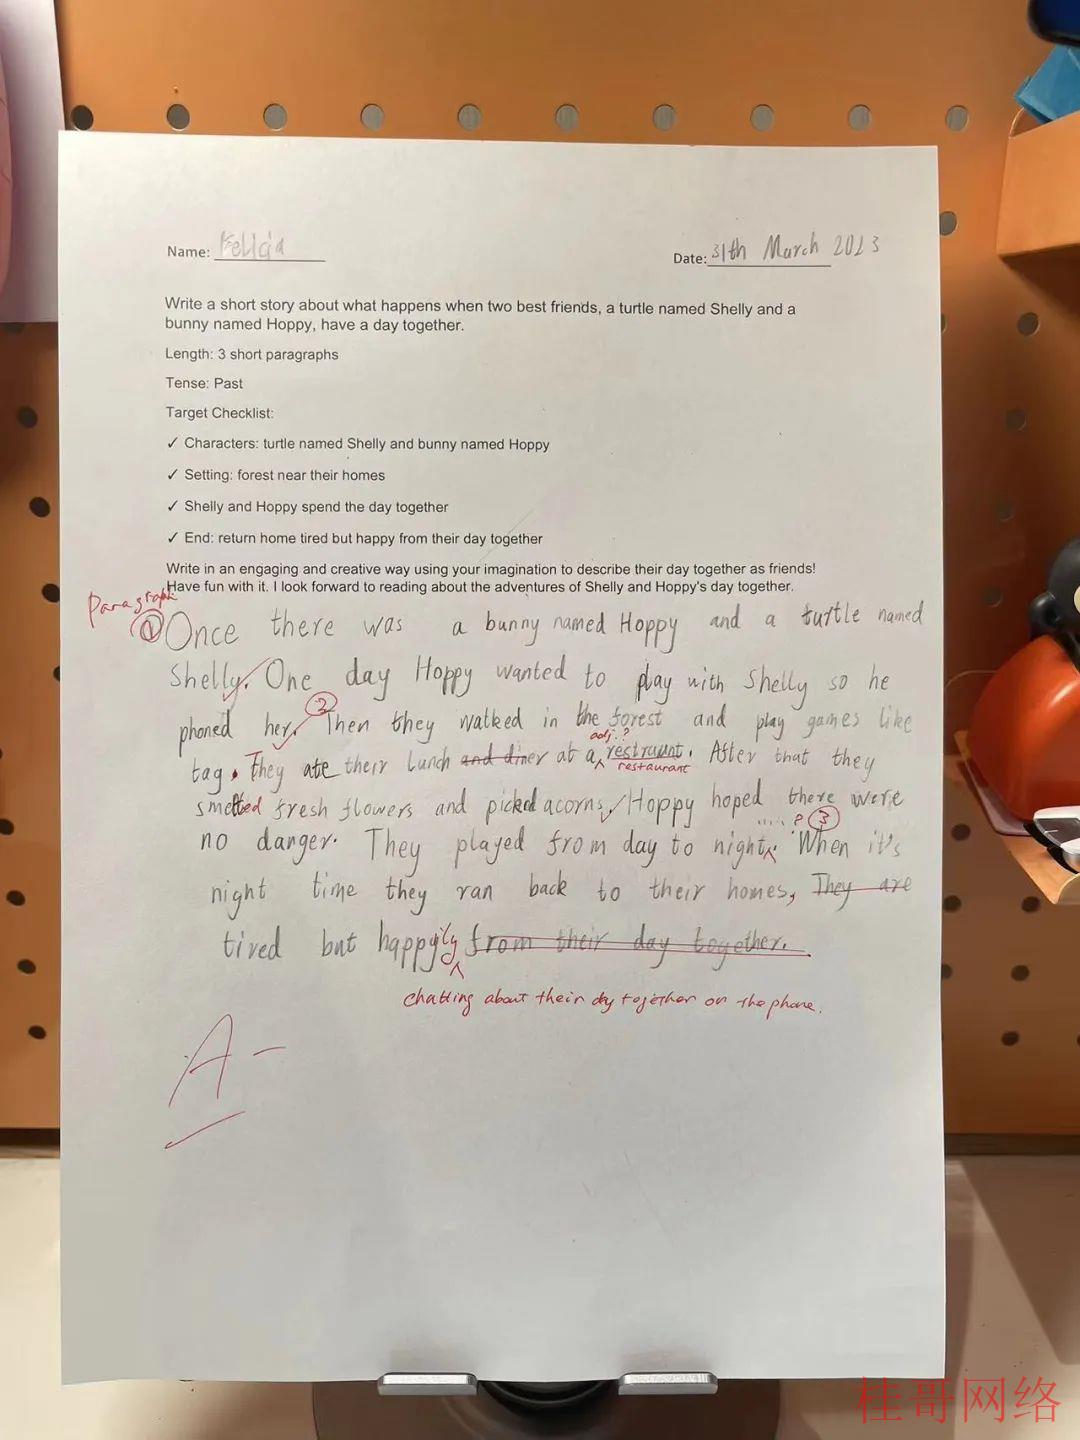 Name: Felicia
Date: 31th March 2023
Write a short story about what happens when two best friends, a turtle named Shelly and a
bunny named Hoppy, have a day together.
Length: 3 short paragraphs
Tense: Past
Target Checklist:
✓ Characters: turtle named Shelly and bunny named Hoppy
✓ Setting: forest near their homes
✓ Shelly and Hoppy spend the day together
✓ End: return home tired but happy from their day together
Write in an engaging and creative way using your imagination to describe their day together as friends!
Have fun with it. I look forward to reading about the adventures of Shelly and Hoppy's day together.
Paragraph
① Once there was a bunny named Hoppy and a turtle named
Shelly. One day Hoppy wanted to play with Shelly so he
phoned her. ② Then they walked in the forest and play games like
adj.?
tag. They ate their lunch and diner at a restraunt. After that they
restaurant
smelted fresh flowers and picked acorns. Hoppy hoped there were
.....? ③
no danger. They played from day to night. When it's
night time they ran back to their homes, They are
tired but happyily from their day together.
chatting about their day together on the phone.
A-
桂哥网络